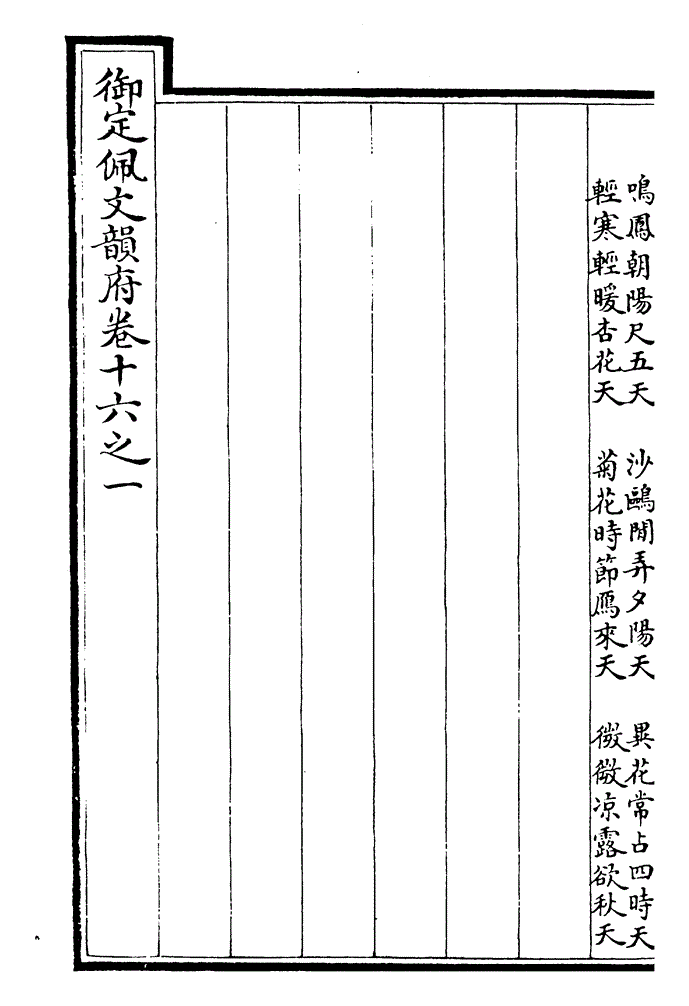 鳴鳳朝陽尺五天　沙鷗閒弄夕陽天　異花常占四時天
輕寒輕暖杏花天　菊花時節鴈來天　微微凉露欲秋天
御定佩文韻府卷十六之一